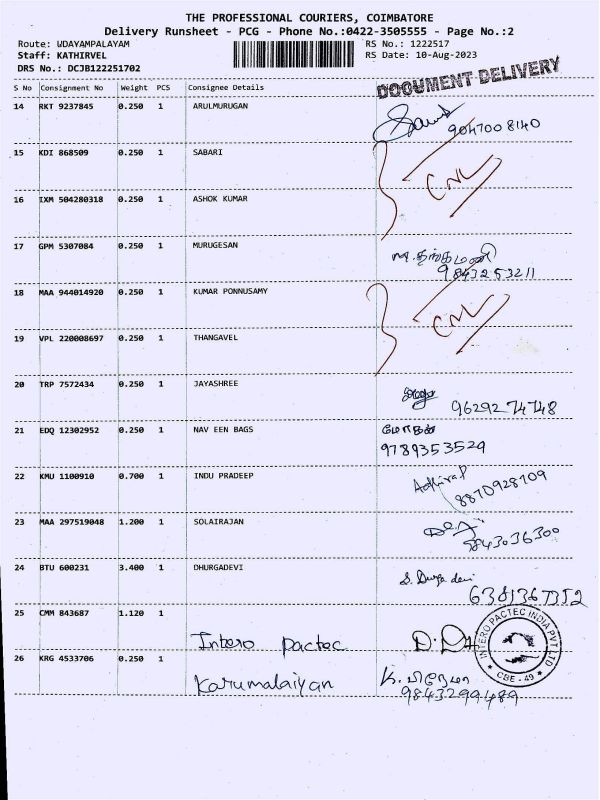 THE PROFESSIONAL COURIERS, COIMBATORE
Delivery Runsheet - PCG - Phone No.:0422-3505555 - Page No.:2
Route: UDAYAMPALAYAM RS No.: 1222517
Staff: KATHIRVEL RS Date: 10-Aug-2023
DRS No.: DCJB122251702
DOCUMENT DELIVERY
S No Consignment No Weight PCS Consignee Details
14 RKT 9237845 0.250 1 ARULMURUGAN
9047008140
15 KDI 868509 0.250 1 SABARI
CNL
16 IXM 504280318 0.250 1 ASHOK KUMAR
17 GPM 5307084 0.250 1 MURUGESAN
தங்கமணி
9843253211
18 MAA 944014920 0.250 1 KUMAR PONNUSAMY
CNL
19 VPL 220008697 0.250 1 THANGAVEL
20 TRP 7572434 0.250 1 JAYASHREE
9629274748
21 EDQ 12302952 0.250 1 NAV EEN BAGS
9789353529
22 KMU 1100910 0.700 1 INDU PRADEEP
8870928709
23 MAA 297519048 1.200 1 SOLAIRAJAN
9843036300
24 BTU 600231 3.400 1 DHURGADEVI
S. Durga devi
6381367352
25 CMM 843687 1.120 1
Intero Pactec
INTERO PACTEC INDIA PVT LTD
CBE - 49
26 KRG 4533706 0.250 1
Karumalaiyan
9843299489